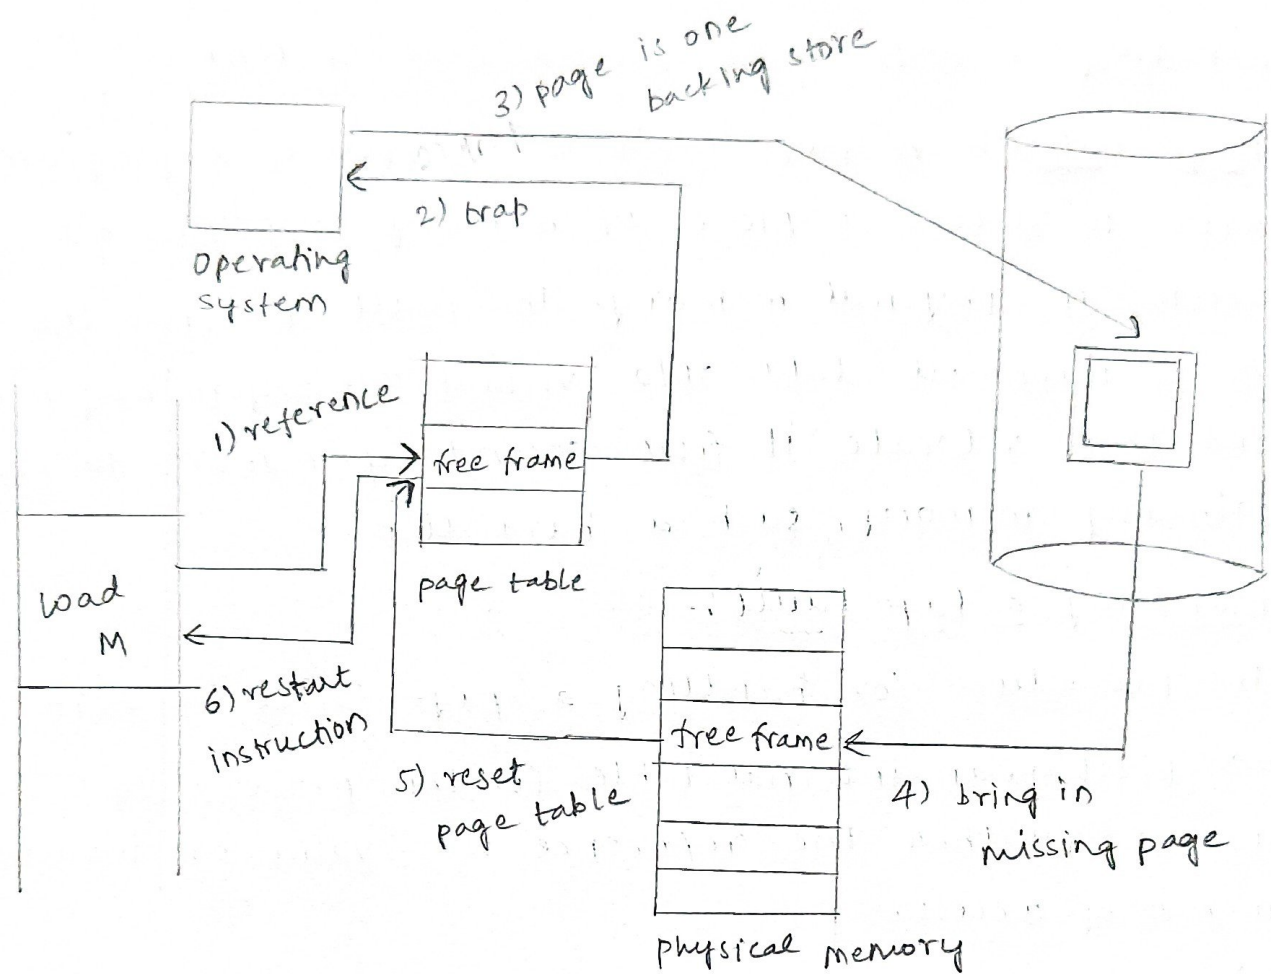 3) page is one
backing store
2) trap
operating
system
1) reference
free frame
page table
load
M
6) restart
instruction
free frame
5) reset
page table
4) bring in
missing page
physical memory